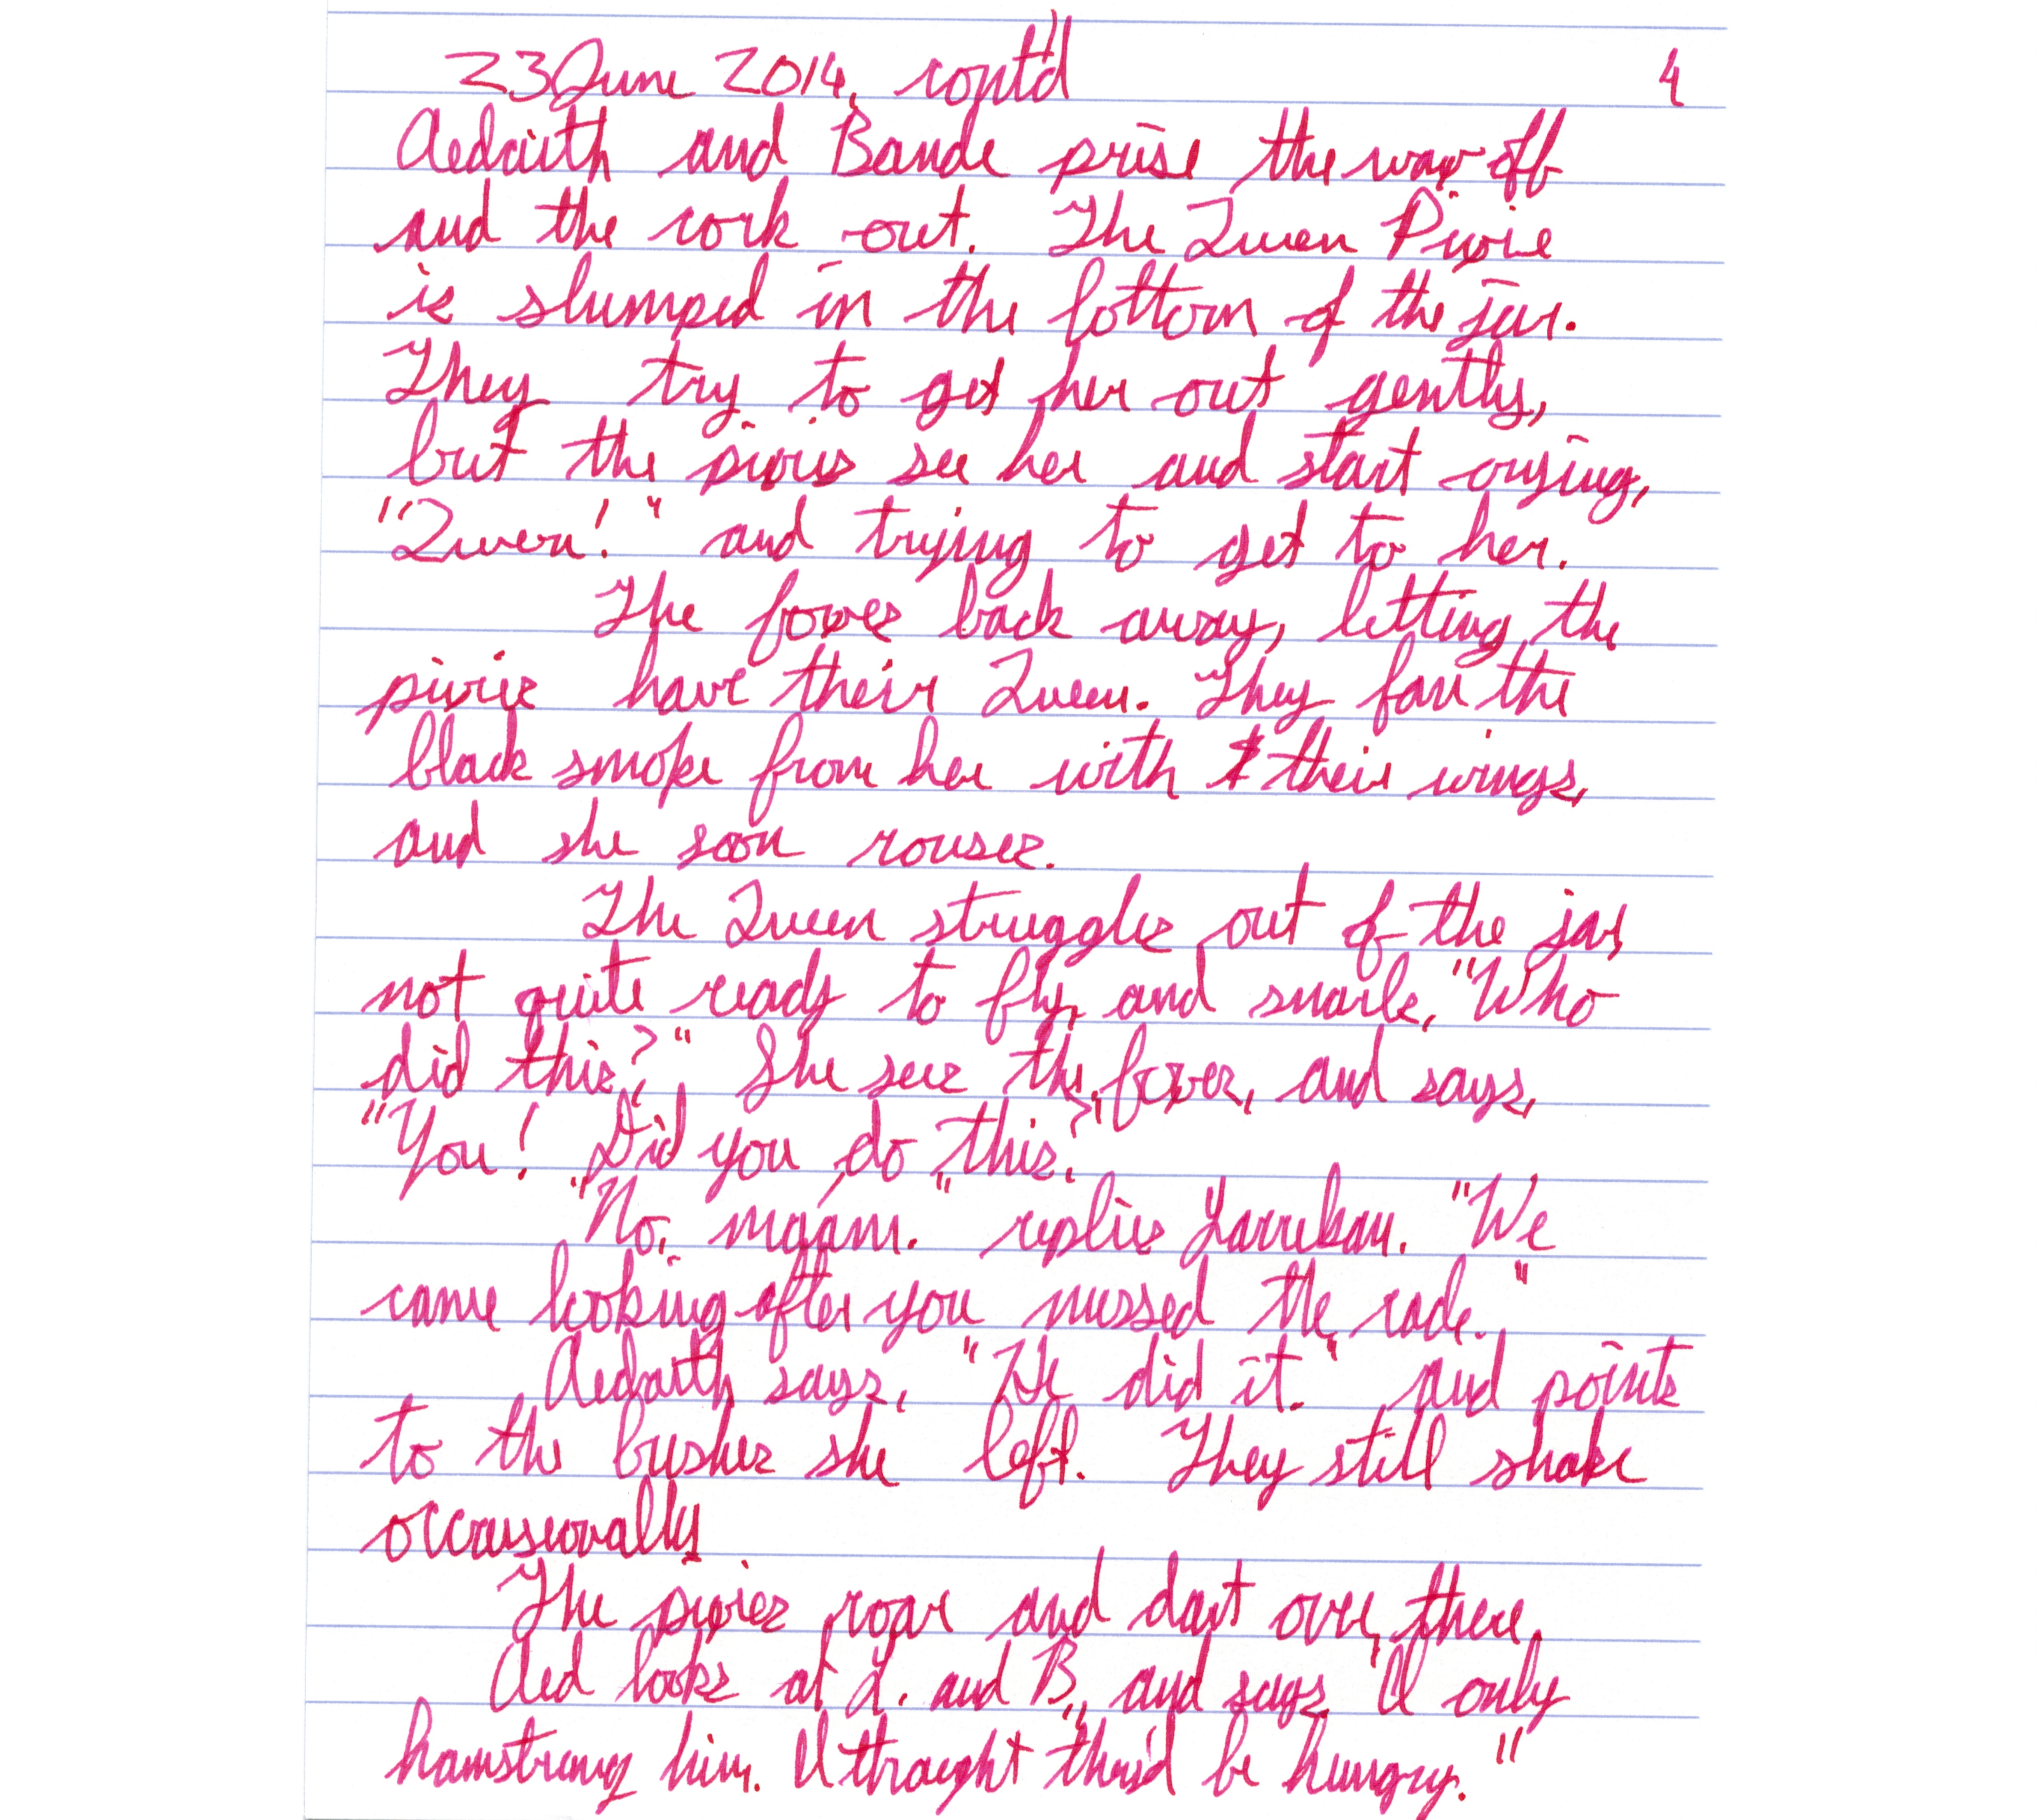 23 June 2014, cont'd 4
Aedaith and Bande prise the wax off
and the cork out. The Queen Pixie
is slumped in the bottom of the jar.
They try to get her out gently,
but the pixies see her and start crying,
"Queen!" and trying to get to her.
The foxes back away, letting the
pixies have their Queen. They fan the
black smoke from her with their wings,
and she soon rouses.
The Queen struggles out of the jar,
not quite ready to fly, and snarls, "Who
did this?" She sees the foxes, and says,
"You! Did you do this?"
"No, ma'am." replies "We
came looking after you missed the rade."
Aedaith says, "He did it." and points
to the bushes she left. They still shake
occassionally
The pixies roar and dart over there.
Aed looks at L. and B, and says, "I only
hamstrung him. I thought they'd be hungry."